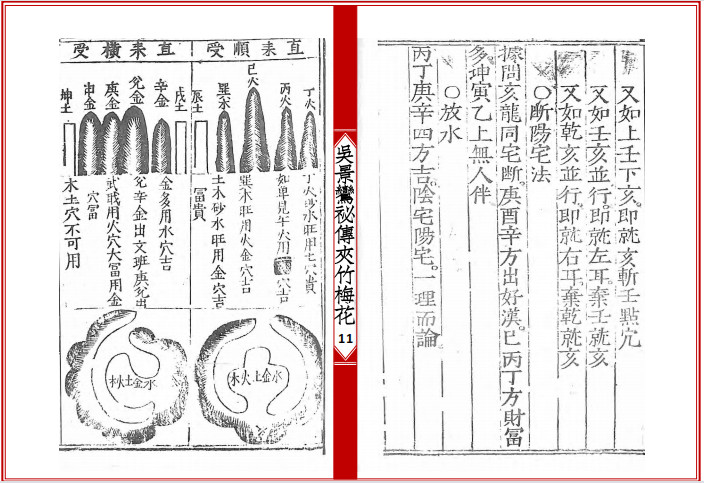 又如上壬下亥。即就亥斬壬點穴
又如壬亥並行。即就左耳。棄壬就亥
又如乾亥並行。即就右耳。棄乾就亥
○断陽宅法
據問亥龍同宅斷。庚酉辛方出好漢。巳丙丁方財冨
多。坤寅乙上無人伴
○放水
丙丁庚辛四方吉。陰宅陽宅。一理而論。
吳景鸞祕傳夾竹梅花
11
直耒順受
丁火
丙火
巳火
巽木
辰土
丁火砂水旺用土穴貴
如單見午火用穴吉
巽木旺用火金穴吉
土木砂水旺用金穴吉
冨貴
水金土火木
直耒橫受
戌土
辛金
兊金
庚金
申金
坤土
金多用水穴吉
兊辛金出文班庚兊出
武職用火穴大冨用金
穴冨
木土穴不可用
水金土火木